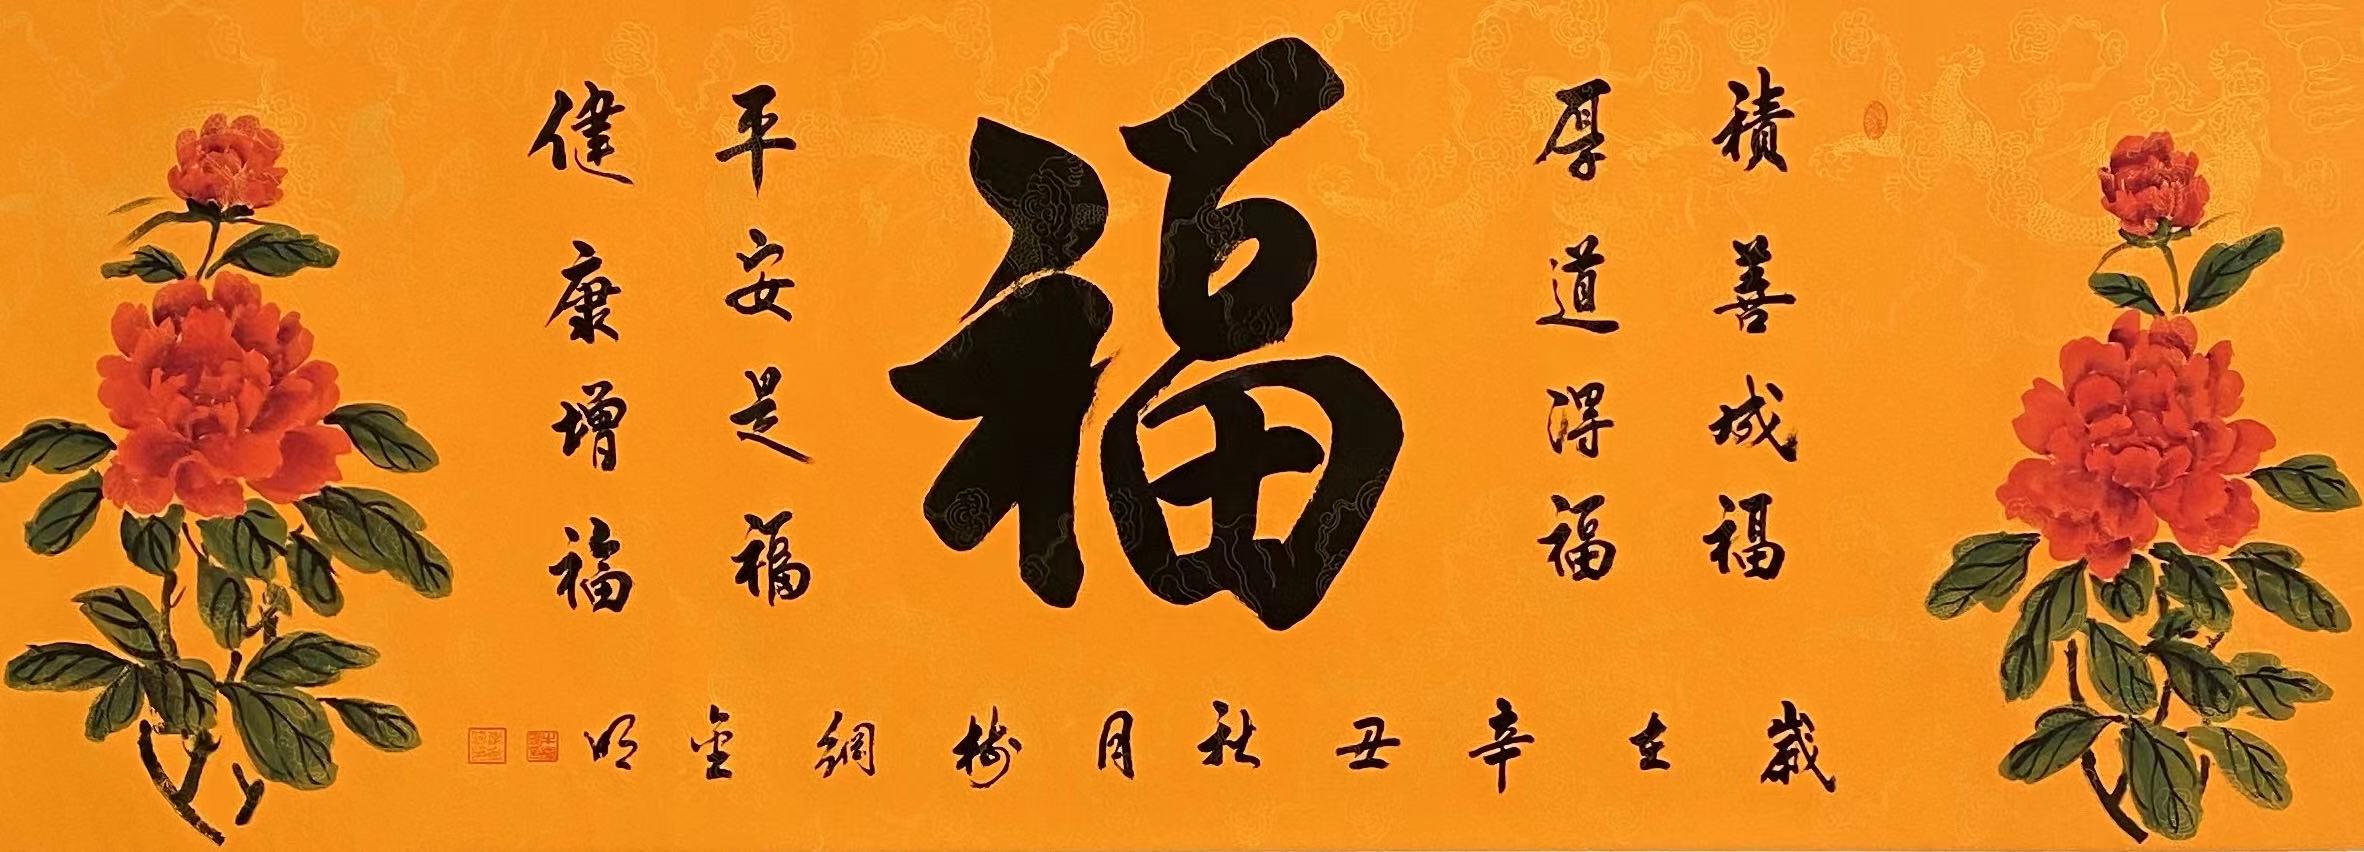 積善城福
厚道得福
福
平安是福
健康增福
歲在辛丑秋月樹鋼金明